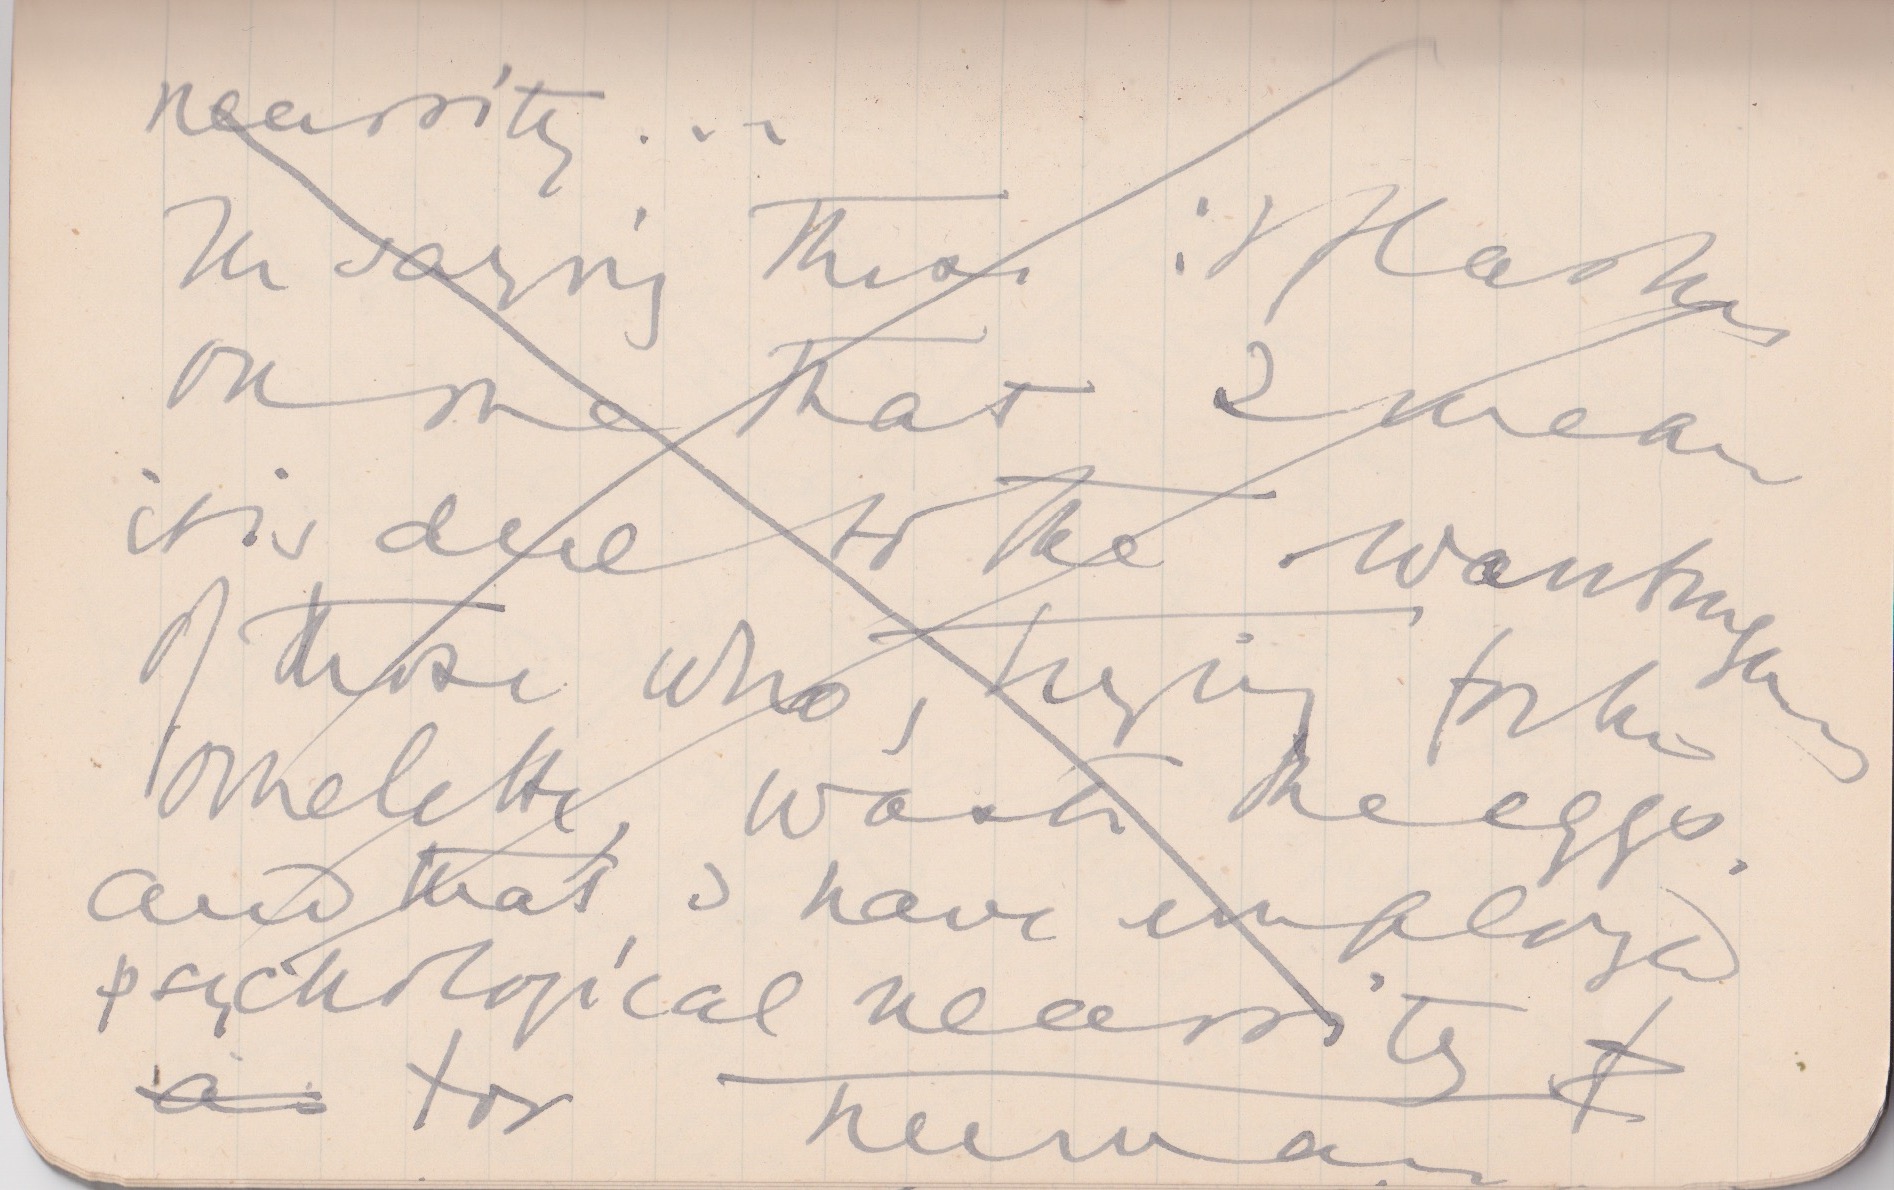 necessity ...
In saying this it flashes
on me that I mean
it is due to the
of those who, trying for his
omelette, waste the eggs.
and that I have employed
psychological necessity
as for human